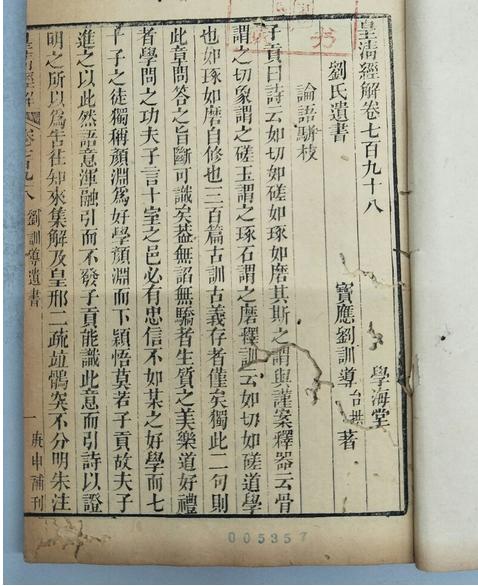 皇清經解卷七百九十八
學海堂
劉氏遺書
寶應劉訓導台拱著
論語駢枝
子貢曰詩云如切如磋如琢如磨其斯之謂與謹案釋器云骨
謂之切象謂之磋玉謂之琢石謂之磨釋訓云如切如磋道學
也如琢如磨自修也三百篇古訓古義存者僅矣獨此二句則
此章問答之旨斷可識矣蓋無諂無驕者生質之美樂道好禮
者學問之功夫子言十室之邑必有忠信不如某之好學而七
十子之徒獨稱顏淵為好學顏淵而下穎悟莫若子貢故夫子
進之以此然語意渾融引而不發子貢能識此意而引詩以證
明之所以為告往知來集解及皇邢二疏竝鶻突不分明朱注
皇清經解
卷七百九十八
劉訓導遺書
一
庚申補刊
005357